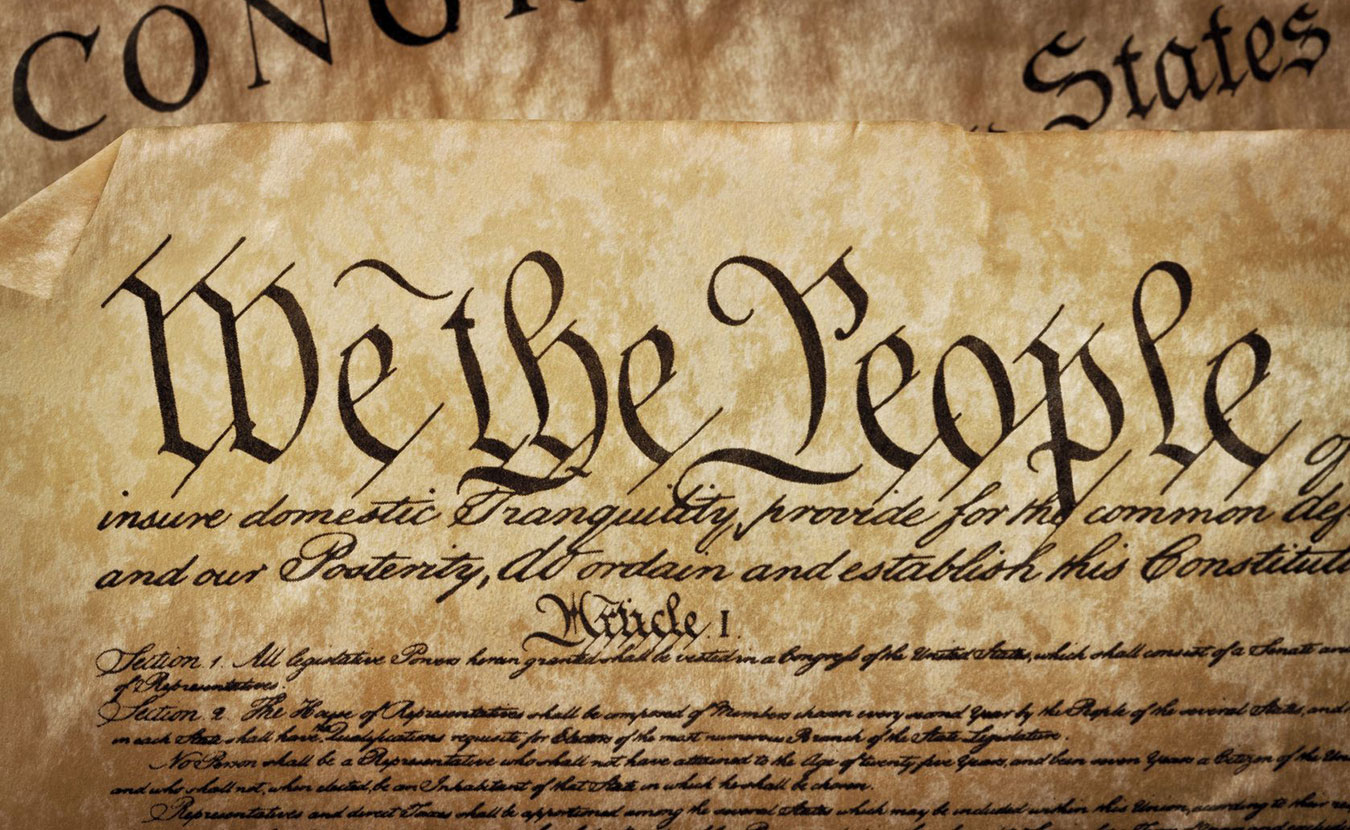 CONG
States
We the People of
insure domestic Tranquility, provide for the common def
and our Posterity, do ordain and establish this Constituti
Article. I.
Section. 1. All legislative Powers herein granted shall be vested in a Congress of the United States, which shall consist of a Senate and
of Representatives.
Section. 2. The House of Representatives shall be composed of Members chosen every second Year by the People of the several States, and
in each State shall have the Qualifications requisite for Electors of the most numerous Branch of the State Legislature.
No Person shall be a Representative who shall not have attained to the Age of twenty five Years, and been seven Years a Citizen of the Uni
and who shall not, when elected, be an Inhabitant of that State in which he shall be chosen.
Representatives and direct Taxes shall be apportioned among the several States which may be included within this Union, according to their